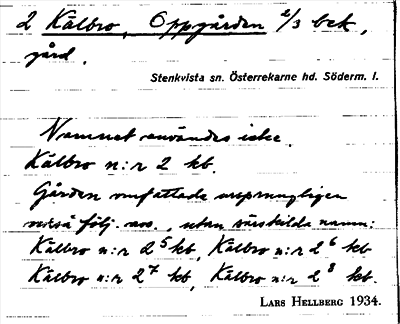 2 Kälbro, Oppgården 2/3 bek,
gård.
Stenkvista sn. Österrekarne hd. Söderm. l.
Namnet användes icke.
Kälbro n:r 2 kb.
Gården omfattade ursprungligen
också följ. , utan särskilda namn:
Kälbro n:r 2⁵ kb, Kälbro n:r 2⁶ kb
Kälbro n:r 2⁷ kb, Kälbro n:r 2⁸ kb.
LARS HELLBERG 1934.